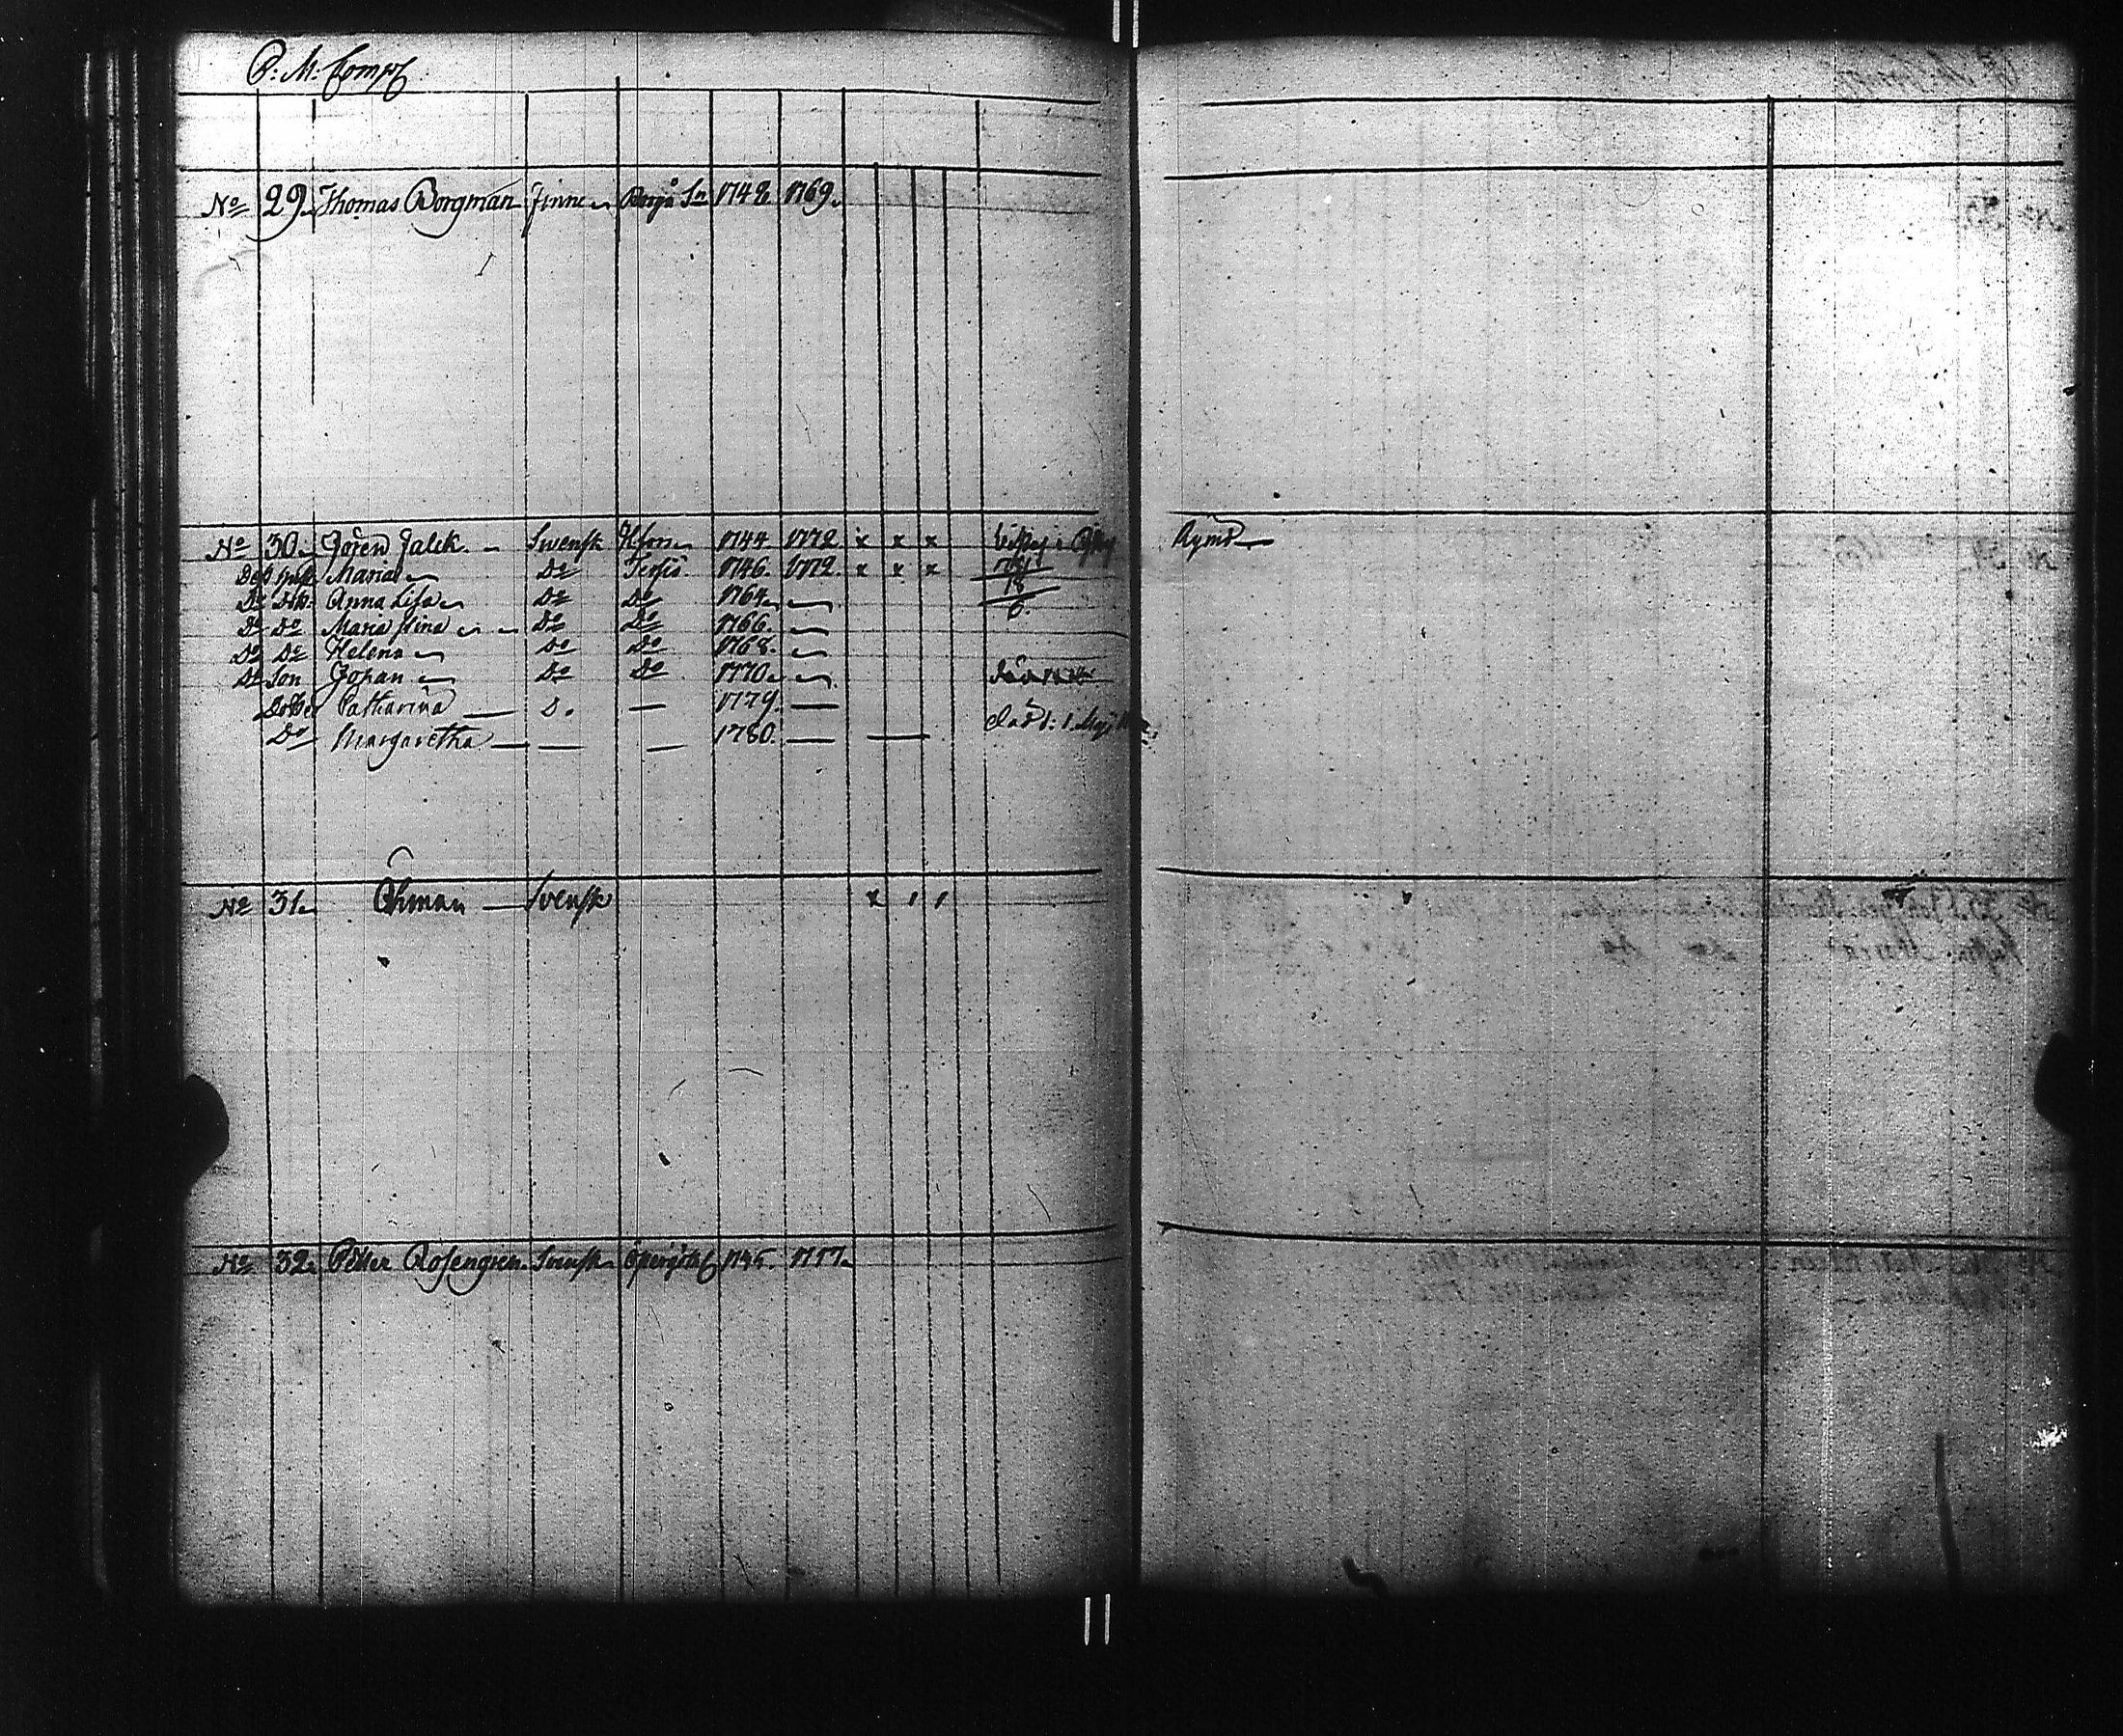 P: M: Comp
No 29. Thomas Borgman Finne Borgå Sn 1748 1769.
No 30. Jören Falck. Swensk Hfors 1744 1772 x x x Rymd
Des Hust Maria Do 1746. 1772. x x x
Do Dot. Anna Lisa Do Do 1764.
Do Do Maria Stina Do Do 1766.
Do Do Helena Do Do 1768.
Do Son Johan Do Do 1770.
Dotter Catharina D. — 1779. —
Do Margaretha — — — 1780. — —
No 31. Öhman — Svensk x
No 32. Petter Rosengren. Svensk 1745. 1777.